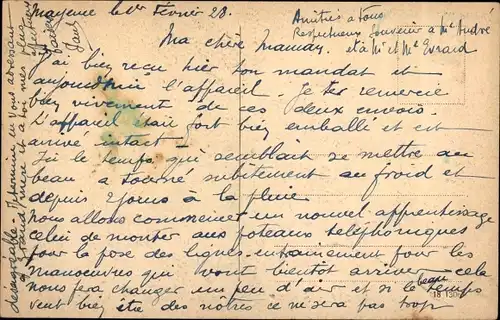 Mayence le 1er Février 28.
Amitiés à tous
Respectueux souvenir à Me André
et à Mr et Me Evrard
Ma chère Maman,
J'ai bien reçu hier ton mandat et
aujourd'hui l'appareil. Je te remercie
bien vivement de ces deux envois.
L'appareil était fort bien emballé et est
arrivé intact.
Ici le temps qui semblait se mettre au
beau a tourné subitement au froid et
depuis 2 jours à la pluie
Nous allons commencer un nouvel apprentissage
celui de monter aux poteaux téléphoniques
pour la pose des lignes, entraînement pour les
manoeuvres qui vont bientôt arriver, cela
nous fera changer un peu d'air et si le beau temps
veut bien être des nôtres ce ne sera pas trop
désagréable. Je termine en vous adressant
à Grand'mère et à toi mes plus
affectueux
baisers